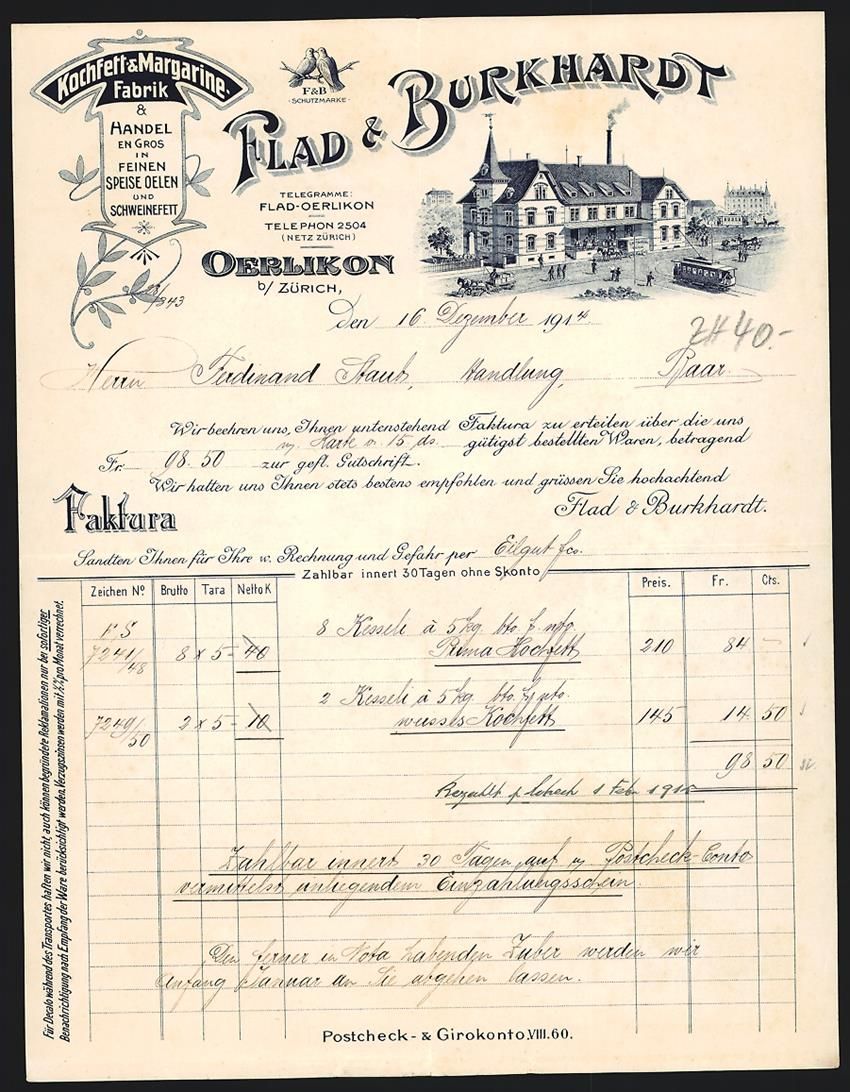 Kochfett & Margarine-
Fabrik
&
HANDEL
EN GROS
IN
FEINEN
SPEISE OELEN
UND
SCHWEINEFETT
F&B
-SCHUTZMARKE-
FLAD & BURKHARDT
TELEGRAMME:
FLAD-OERLIKON
TELEPHON 2504
(NETZ ZÜRICH)
OERLIKON
b/ ZÜRICH,
343
den 16. Dezember 1914.
40.-
Herrn Ferdinand Staub, Handlung, Baar.
Wir beehren uns, Ihnen untenstehend Faktura zu erteilen über die uns
Karte v. 15. ds. gütigst bestellten Waren, betragend
Fr. 98.50 zur gefl. Gutschrift.
Wir halten uns Ihnen stets bestens empfohlen und grüssen Sie hochachtend
Flad & Burkhardt.
Faktura
Sandten Ihnen für Ihre w. Rechnung und Gefahr per Eilgut fco.
Zahlbar innert 30 Tagen ohne Skonto
Zeichen No Brutto Tara Netto K Preis. Fr. Cts.
F.S 8 Kesseli à 5 kg. bto. f. nto.
7241/48 8 x 5 = 40 Kochfett 210 84 -
2 Kesseli à 5 kg. bto. f. nto.
7249/50 2 x 5 = 10 weisses Kochfett 145 14. 50
98 50
Bezahlt p. Check 1 Febr. 1915
Zahlbar innert 30 Tagen auf m/ Postcheck-Conto
vermittelst anliegendem Einzahlungsschein.
Den ferner in Nota habenden Zuber werden wir
Anfang Januar an Sie abgehen lassen.
Postcheck- & Girokonto.VIII.60.
Für Decalo während des Transportes haften wir nicht, auch können begründete Reklamationen nur bei sofortiger
Benachrichtigung nach Empfang der Ware berücksichtigt werden. Verzugszinsen werden mit ½% pro Monat verrechnet.